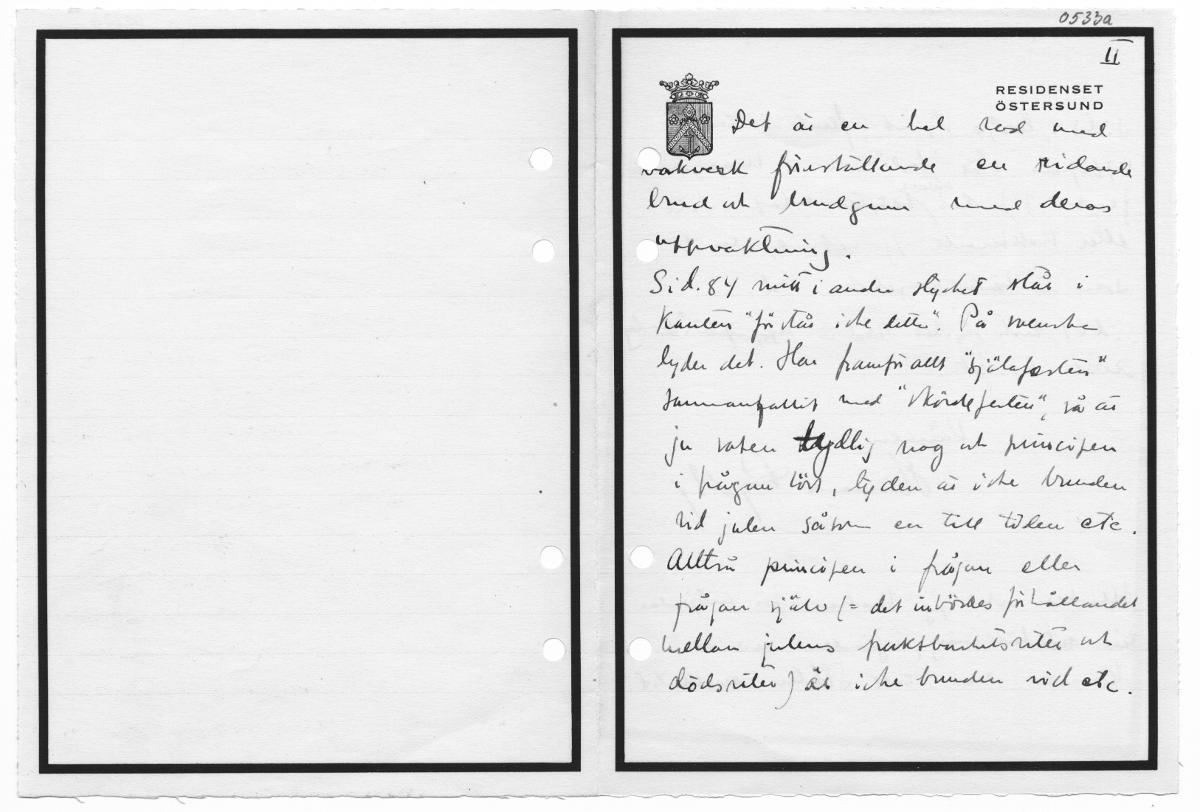 0533a
II
RESIDENSET
ÖSTERSUND
Det är en hel rad med
vaxverk föreställande en ridande
brud och brudgum med deras
uppvaktning.
Sid. 84 mitt i andra stycket står i
Kanten "förstår icke detta". På svenska
lyder det. Har framför allt "själafesten"
sammanfallit med "skördefesten", så är
ju saken tydlig nog och principen
i frågan löst, ty den är icke bunden
vid julen såsom en till tiden etc.
Alltså principen i frågan eller
frågan själv (= det inbördes förhållandet
mellan julens fruktbarhetsriter och
dödsriter) är icke bunden vid etc.